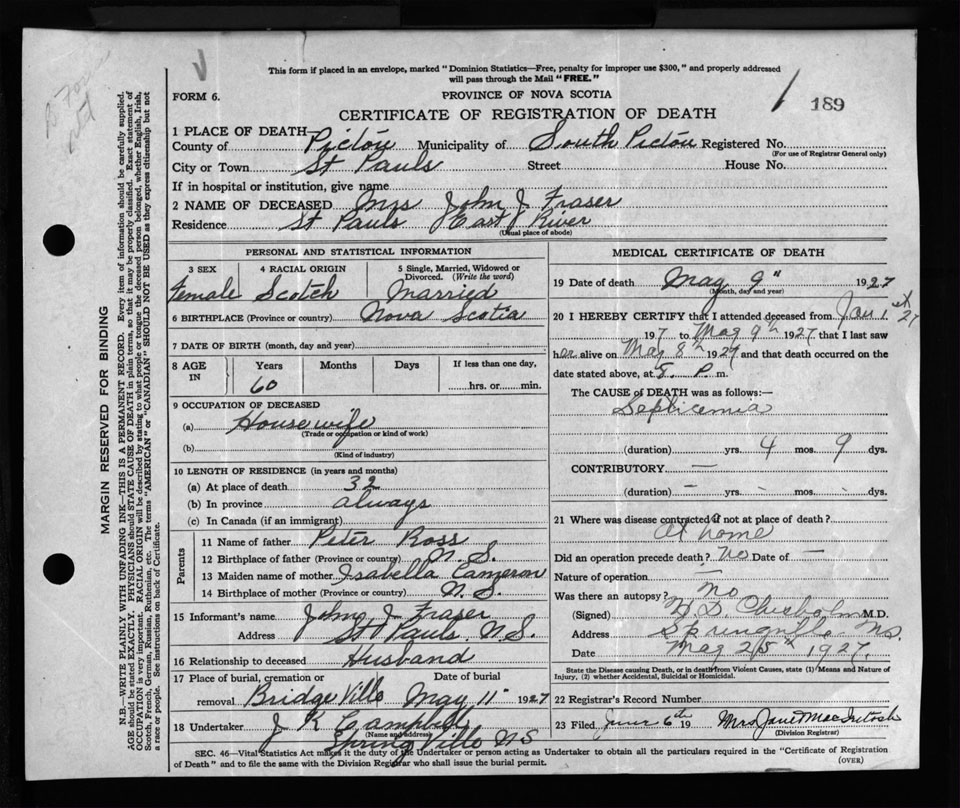 This form if placed in an envelope, marked "Dominion Statistics—Free, penalty for improper use $300," and properly addressed
will pass through the Mail "FREE."
FORM 6.
PROVINCE OF NOVA SCOTIA
CERTIFICATE OF REGISTRATION OF DEATH
189
1 PLACE OF DEATH—
County of Pictou Municipality of South Pictou Registered No.
(For use of Registrar General only)
City or Town St Pauls Street House No.
If in hospital or institution, give name
2 NAME OF DECEASED Mrs John J Fraser
Residence St Pauls East River
(Usual place of abode)
PERSONAL AND STATISTICAL INFORMATION
3 SEX 4 RACIAL ORIGIN 5 Single, Married, Widowed or
Divorced. (Write the word)
Female Scotch Married
6 BIRTHPLACE (Province or country) Nova Scotia
7 DATE OF BIRTH (month, day and year)
8 AGE IN Years Months Days If less than one day,
60 hrs. or min.
9 OCCUPATION OF DECEASED
(a) Housewife
(Trade or occupation or kind of work)
(b)
(Kind of industry)
10 LENGTH OF RESIDENCE (in years and months)
(a) At place of death 32
(b) In province always
(c) In Canada (if an immigrant)
Parents
11 Name of father Peter Ross
12 Birthplace of father (Province or country) N. S.
13 Maiden name of mother Isabella Cameron
14 Birthplace of mother (Province or country) N. S.
15 Informant's name John J. Fraser
Address St Pauls. N.S.
16 Relationship to deceased Husband
17 Place of burial, cremation or Date of burial
removal Bridge Ville May 11" 1927
18 Undertaker J K Campbell
(Name and address)
Spring Ville NS
MEDICAL CERTIFICATE OF DEATH
19 Date of death May 9" 1927
(Month, day and year)
20 I HEREBY CERTIFY that I attended deceased from Jan 1st 27
197 to May 9th 1927 that I last saw
her alive on May 8th 1927 and that death occurred on the
date stated above, at 5. P. m.
The CAUSE of DEATH was as follows:—
Septicemia
(duration) yrs. 4 mos. 9 dys.
CONTRIBUTORY —
(duration) — yrs. — mos. — dys.
21 Where was disease contracted if not at place of death?
At home
Did an operation precede death? No Date of —
Nature of operation —
Was there an autopsy? No
(Signed) Chisholm M.D.
Address Springville N.S.
Date May 25th 1927.
State the Disease causing Death, or in death from Violent Causes, state (1) Means and Nature of
Injury, (2) whether Accidental, Suicidal or Homicidal.
22 Registrar's Record Number
23 Filed June 6th 19 Mrs Jane MacIntosh
(Division Registrar)
SEC. 46—Vital Statistics Act makes it the duty of the Undertaker or person acting as Undertaker to obtain all the particulars required in the "Certificate of Registration
of Death" and to file the same with the Division Registrar who shall issue the burial permit.
(OVER)
MARGIN RESERVED FOR BINDING
N.B.—WRITE PLAINLY WITH UNFADING INK—THIS IS A PERMANENT RECORD. Every item of information should be carefully supplied.
AGE should be stated EXACTLY. PHYSICIANS should STATE CAUSE OF DEATH in plain terms, so that it may be properly classified. Exact statement of
OCCUPATION is very important. RACIAL ORIGIN will be described by stating to what people or tongue the deceased person belonged, whether English, Irish,
Scotch, French, German, Russian, Ruthenian, etc. The terms "AMERICAN" or "CANADIAN" SHOULD NOT BE USED as they express citizenship but not
a race or people. See instructions on back of Certificate.